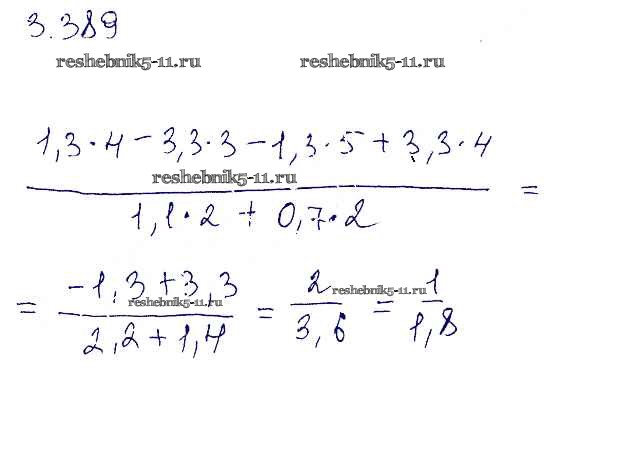 3.389
reshebnik5-11.ru reshebnik5-11.ru
1,3·4 - 3,3·3 - 1,3·5 + 3,3·4
reshebnik5-11.ru
=
1,1·2 + 0,7·2
= -1,3 + 3,3 / 2,2 + 1,4 = 2 / 3,6 = 1 / 1,8
reshebnik5-11.ru reshebnik5-11.ru